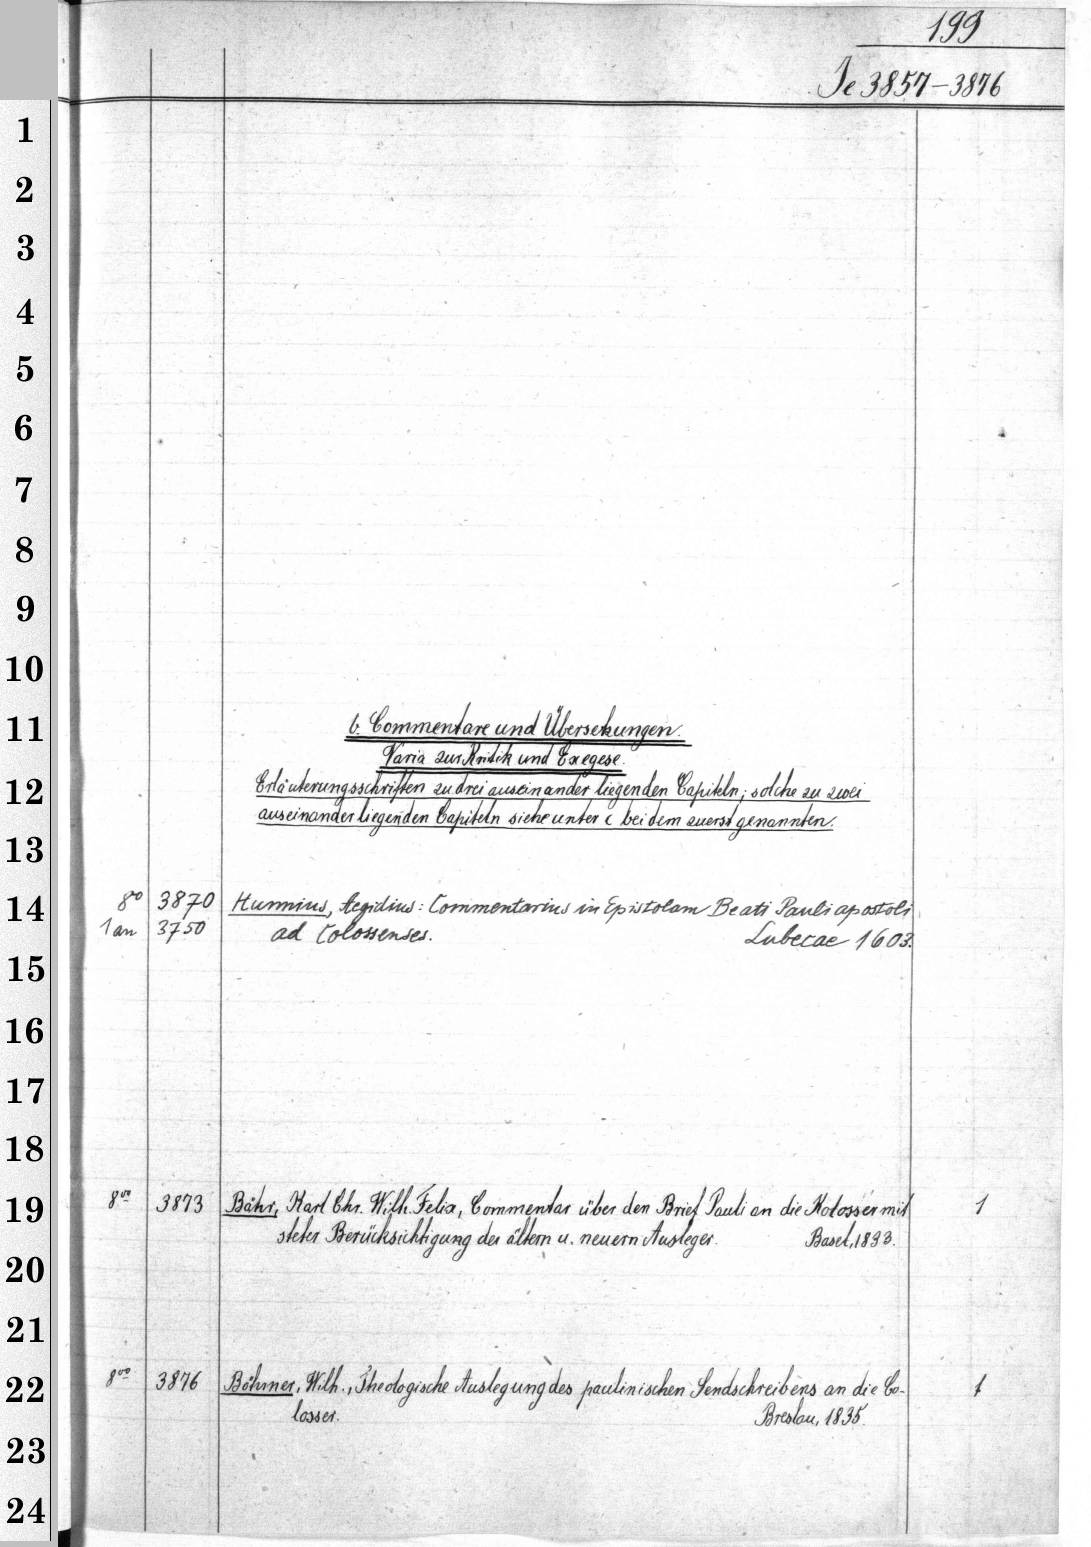 199
Ie 3857-3876
1
2
3
4
5
6
7
8
9
10
11
b. Commentare und Übersetzungen.
Varia zur Kritik und Exegese.
12
Erläuterungsschriften zu drei auseinander liegenden Capiteln; solche zu zwei
auseinander liegenden Capiteln siehe unter c bei dem zuerst genannten.
13
14
8° 3870 Hunnius, Aegidius: Commentarius in Epistolam Beati Pauli apostoli
1 an 3750 ad Colossenses. Lubecae 1603.
15
16
17
18
19
8vo 3873 Bähr, Karl Chr. Wilh. Felix, Commentar über den Brief Pauli an die Kolosser mit 1
steter Berücksichtigung der ältern u. neuern Ausleger. Basel, 1833.
20
21
22
8vo 3876 Böhmer, Wilh., Theologische Auslegung des paulinischen Sendschreibens an die Co- 1
losser. Breslau, 1835.
23
24